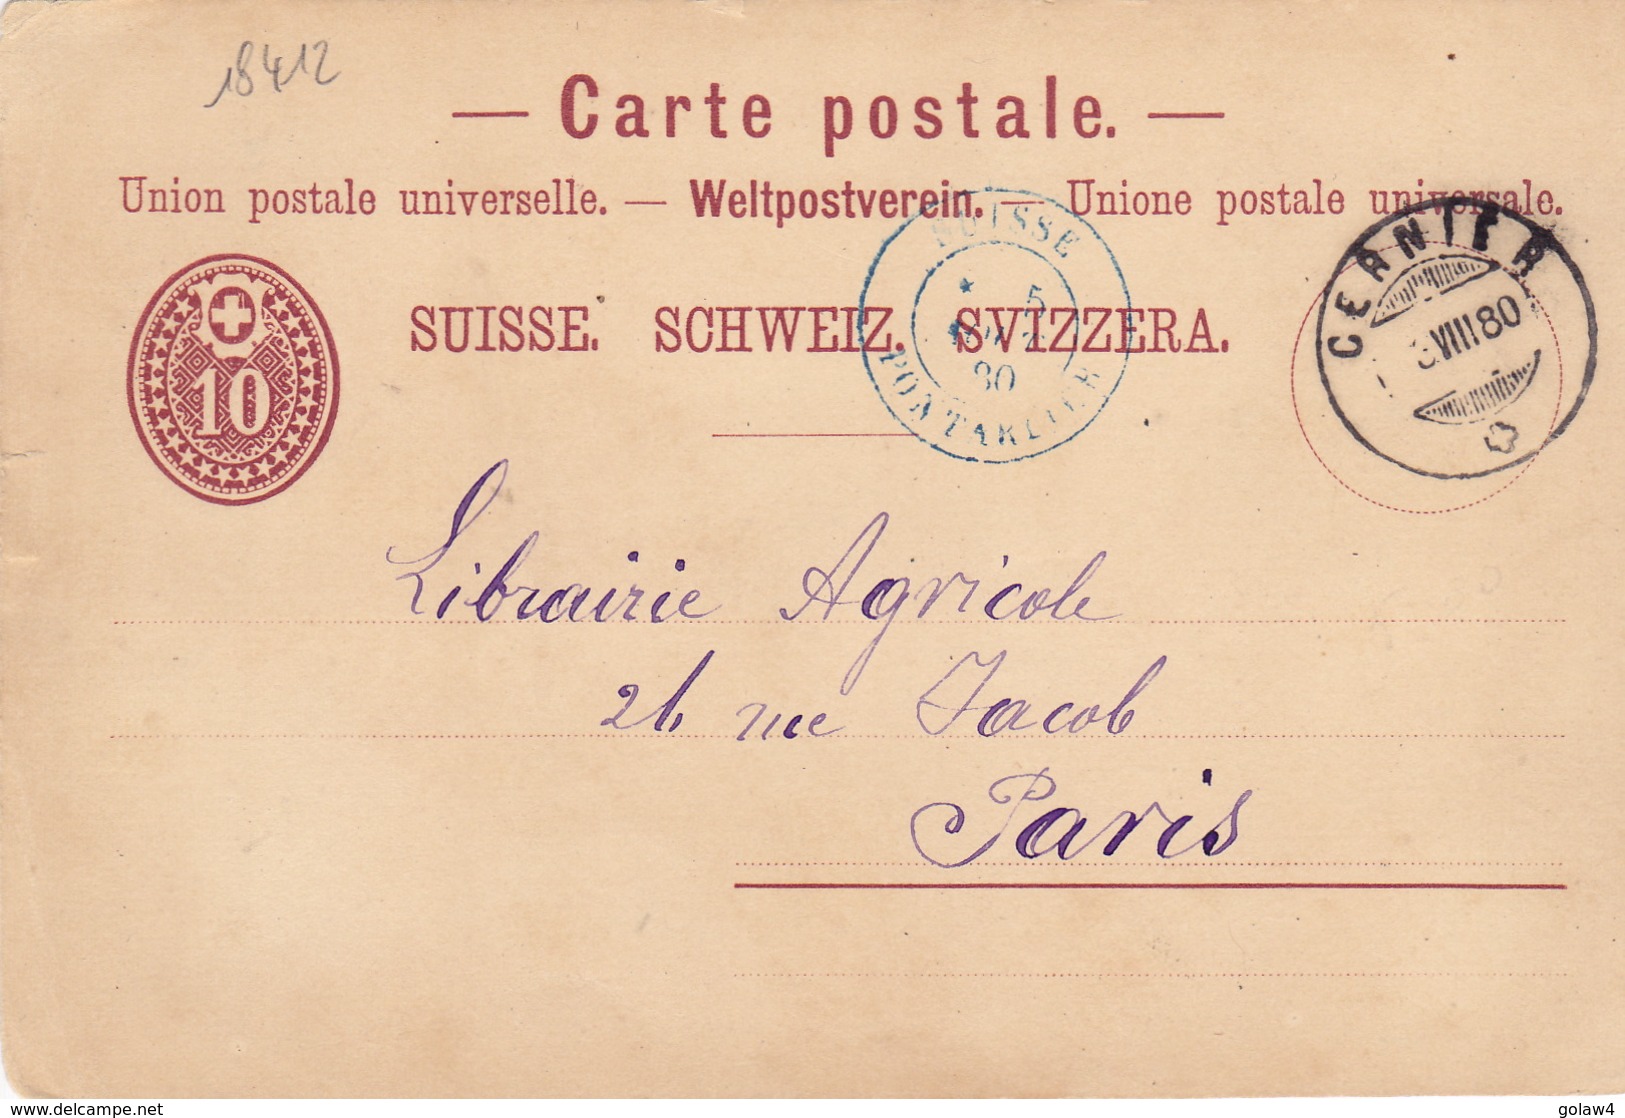 18412
— Carte postale. —
Union postale universelle. — Weltpostverein. — Unione postale universale.
10
SUISSE. SCHWEIZ. SVIZZERA.
SUISSE
5
80
PONTARLIER
CERNIER
VIII 80
Librairie Agricole
26 rue Jacob
Paris
www.delcampe.net
golaw4